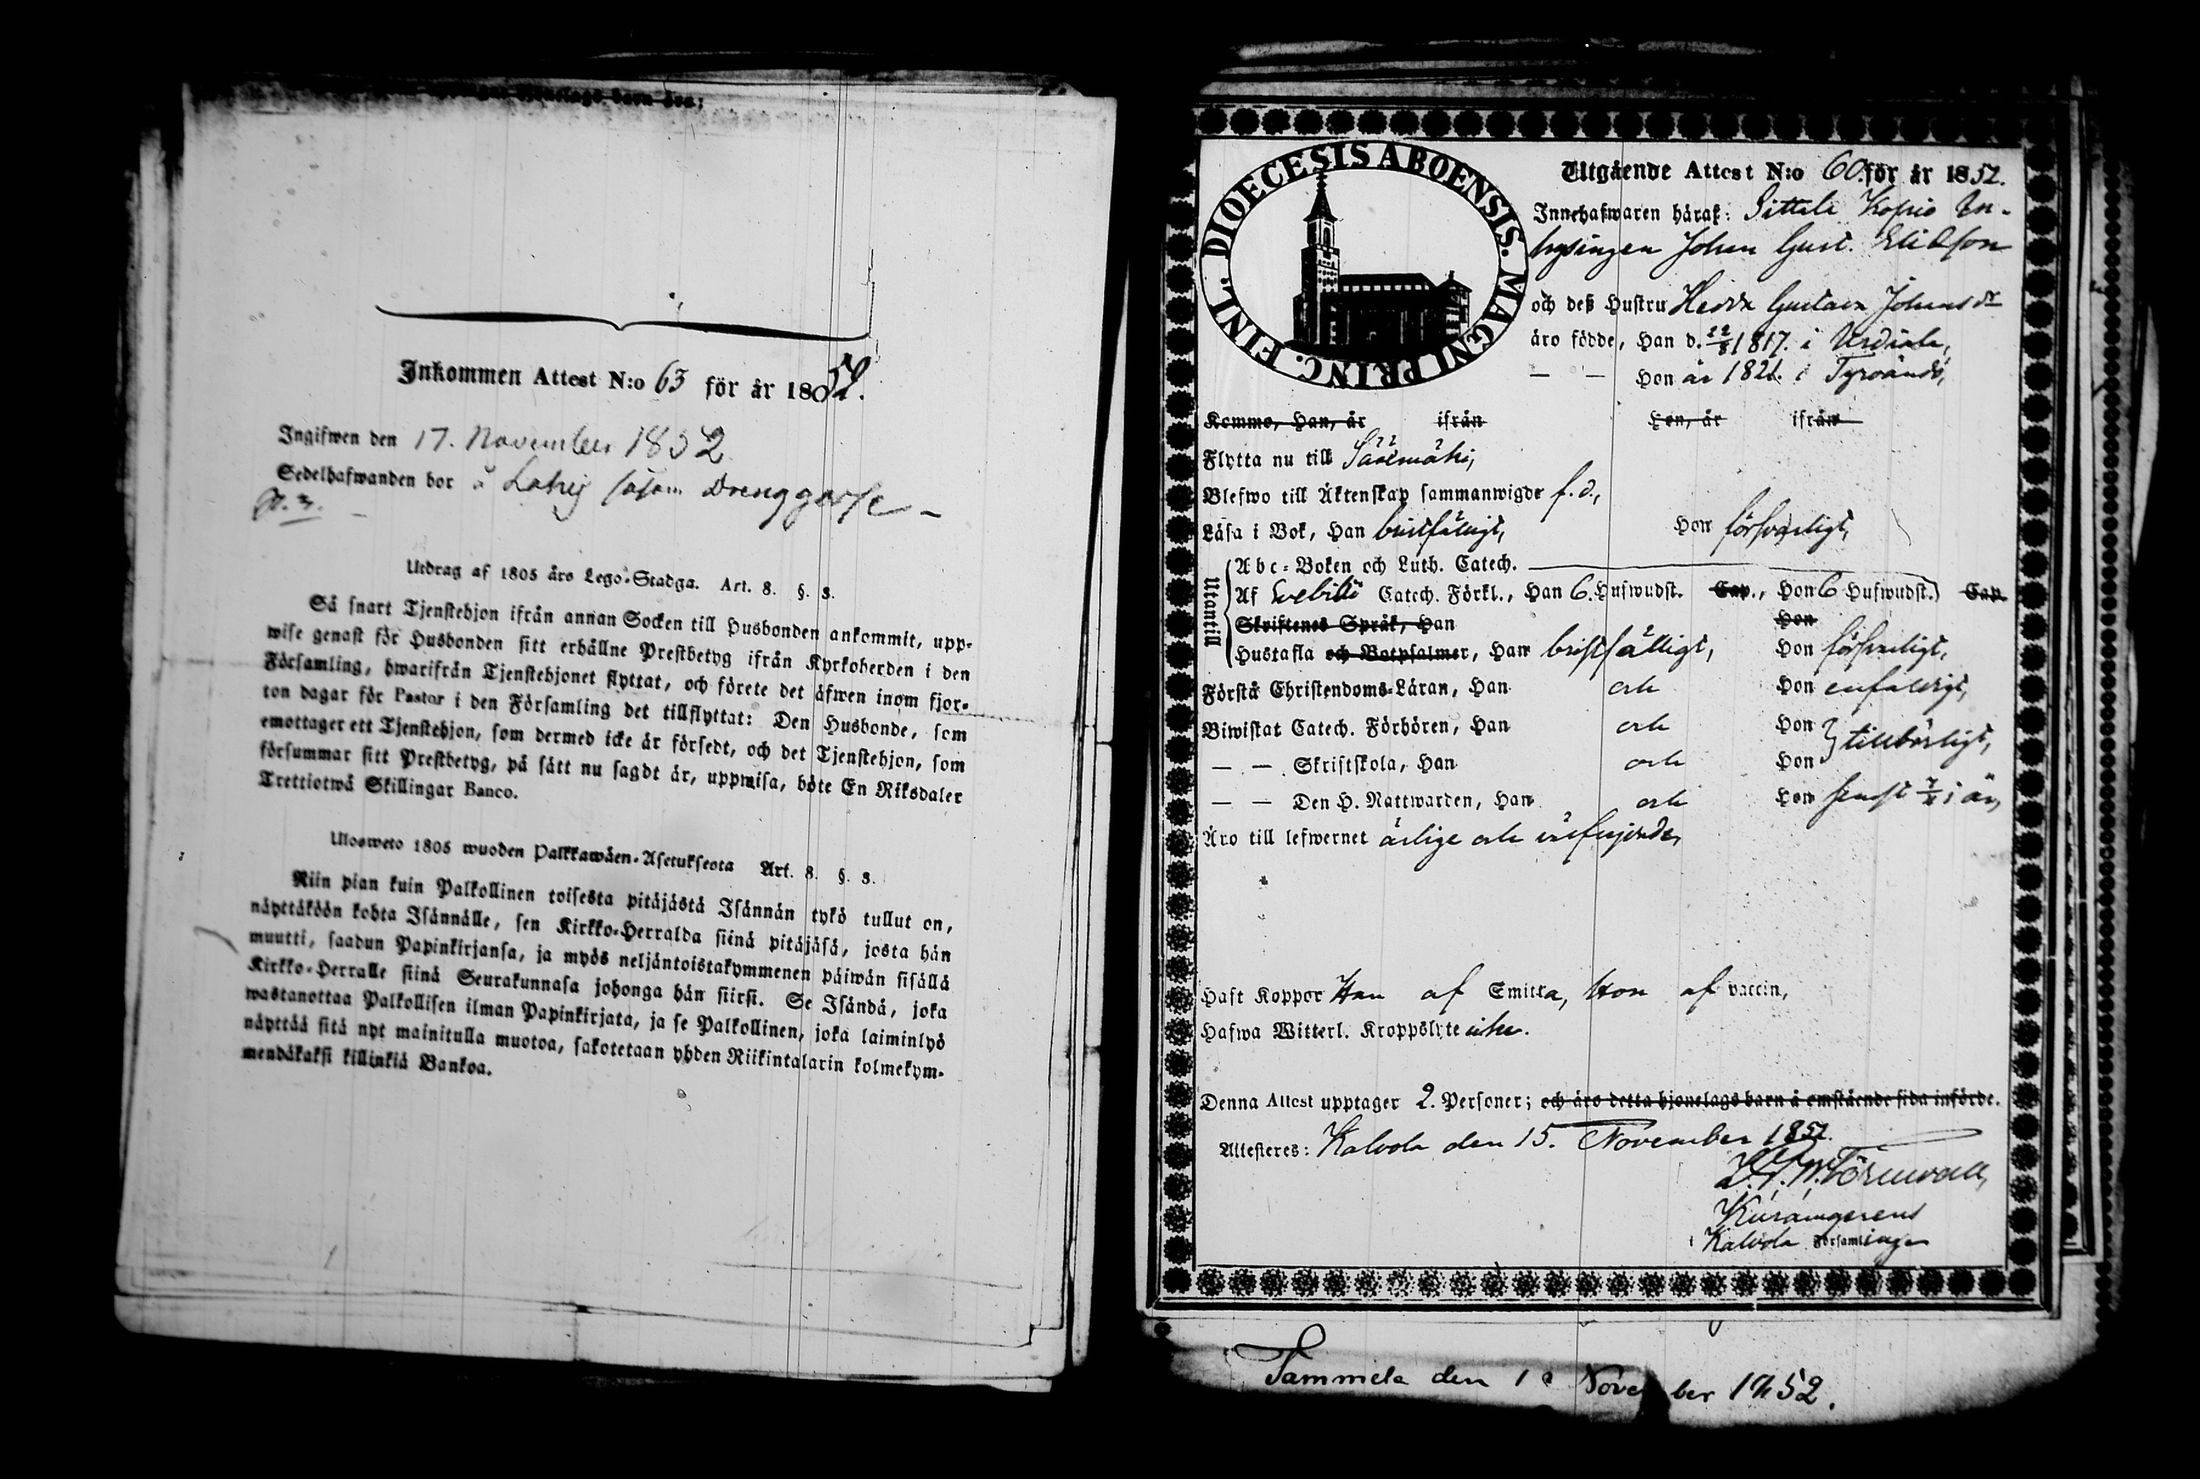 Inkommen Attest N:o 63 för år 1852.
Ingifwen den 17. November 1852
Sedelhafwanden bor å
Utdrag af 1805 års Lego-Stadga. Art. 8. §. 3.
Så snart Tjenstehjon ifrån annan Socken till Husbonden ankommit, upp-
wise genast för Husbonden sitt erhållne Prestbetyg ifrån Kyrkoherden i den
Församling, hwarifrån Tjenstehjonet flyttat, och förete det äfwen inom fjor-
ton dagar för Pastor i den Församling det tillflyttat: Den Husbonde, som
emottager ett Tjenstehjon, som dermed icke är försedt, och det Tjenstehjon, som
försummar sitt Prestbetyg, på sätt nu sagdt är, uppwisa, böte En Riksdaler
Trettiotwå Skillingar Banco.
Ulosweto 1805 wuoden Palkkawäen-Asetuksesta Art. 8. §. 3.
Niin pian kuin Palkollinen toisesta pitäjästä Isännän tykö tullut on,
näyttäköön kohta Isännälle, sen Kirkko-Herralda siinä pitäjäsä, josta hän
muutti, saadun Papinkirjansa, ja myös neljäntoistakymmenen päiwän sisällä
Kirkko-Herralle siinä Seurakunnasa johonga hän siirsi. Se Isändä, joka
wastanottaa Palkollisen ilman Papinkirjata, ja se Palkollinen, joka laiminlyö
näyttää sitä nyt mainitulla muotoa, sakotetaan yhden Riikintalarin kolmekym-
mendäkaksi killinkiä Bankoa.
FINL. DIOECESIS ABOENSIS. MAGNI PRINC.
Utgående Attest N:o 60 för år 1852.
Innehafwaren häraf: Sittala Kopis In-
hysingen Johan Gust. Eliasson
och deß Hustru Hedda Gustava Johansdr
äro födde, Han d. 22/8 1817. i Urdiala,
— — Hon år 1821. i Tyrvändö,
Kommo, Han, år ifrån Hon, år ifrån
Flytta nu till Sääxmäki,
Blefwo till Äktenskap sammanwigde f. å.,
Läsa i Bok, Han bristfälligt, Hon försvarligt,
Utantill
Abc-Boken och Luth. Catech.
Af Svebilii Catech. Förkl., Han 6. Hufwudst. Cap., Hon 6 Hufwudst. Cap.
Skriftenes Språk, Han Hon
Hustafla och Botpsalmer, Han bristfälligt, Hon försvarligt,
Förstå Christendoms-Läran, Han och Hon enfaldigt,
Biwistat Catech. Förhören, Han och Hon } tillbörligt,
— — Skriftskola, Han och Hon
— — Den H. Nattwarden, Han och Hon senast i år,
Äro till lefwernet ärlige och välfrejdade,
Haft Koppor Han af Smitta, Hon af vaccin,
Hafwa Witterl. Kroppslyte icke.
Denna Attest upptager 2. Personer; och äro detta hjonelags barn å omstående sida införde.
Attesteres: Kalvola den 15. November 1852.
Törnwall,
i Kalvola Församlingen
Tammela den November 1852.